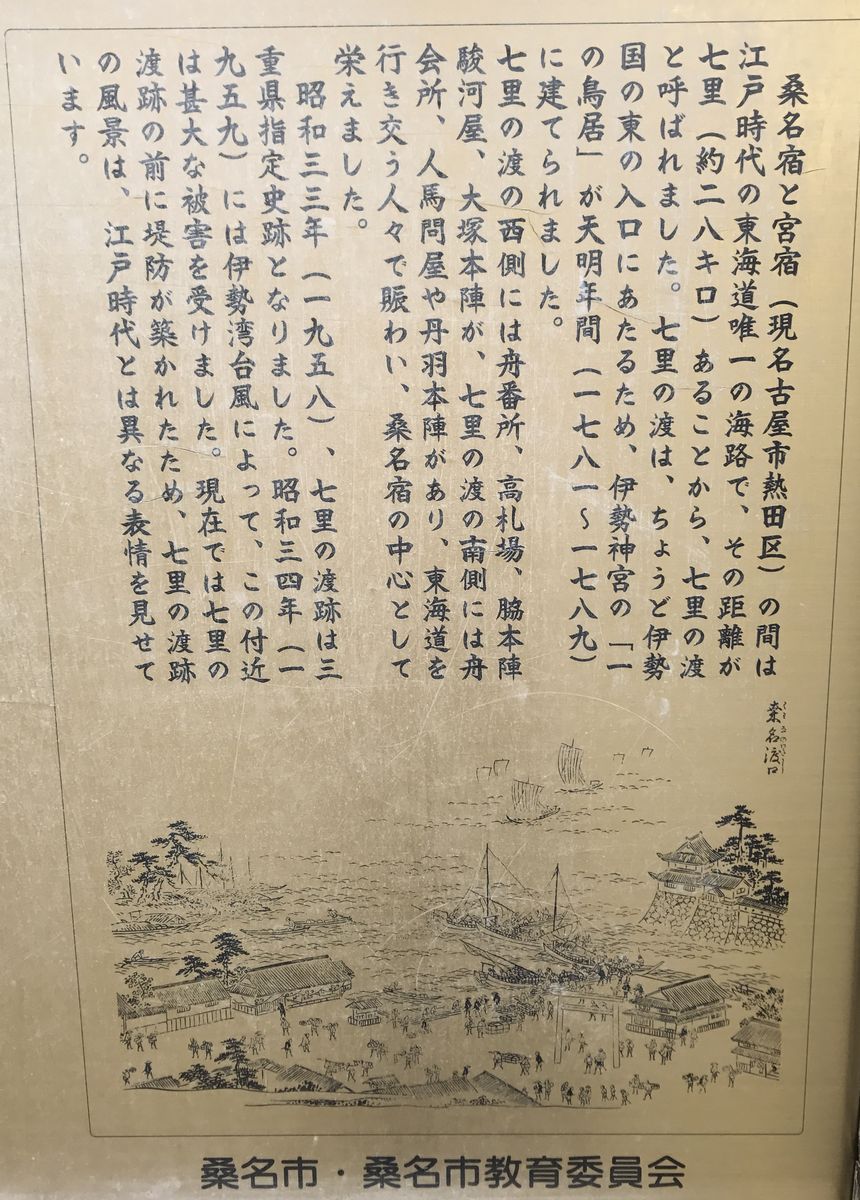 桑名宿と宮宿（現名古屋市熱田区）の間は
江戸時代の東海道唯一の海路で、その距離が
七里（約二八キロ）あることから、七里の渡
と呼ばれました。七里の渡は、ちょうど伊勢
国の東の入口にあたるため、伊勢神宮の「一
の鳥居」が天明年間（一七八一～一七八九）
に建てられました。
七里の渡の西側には舟番所、高札場、脇本陣
駿河屋、大塚本陣が、七里の渡の南側には舟
会所、人馬問屋や丹羽本陣があり、東海道を
行き交う人々で賑わい、桑名宿の中心として
栄えました。
昭和三三年（一九五八）、七里の渡跡は三
重県指定史跡となりました。昭和三四年（一
九五九）には伊勢湾台風によって、この付近
は甚大な被害を受けました。現在では七里の
渡跡の前に堤防が築かれたため、七里の渡跡
の風景は、江戸時代とは異なる表情を見せて
います。
桑名渡口
桑名市・桑名市教育委員会